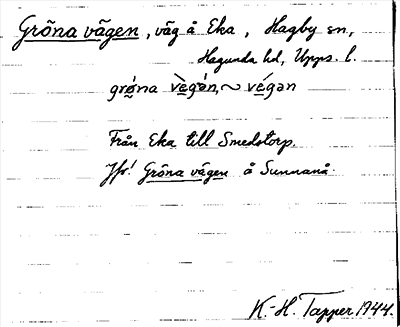 Gröna vägen, väg å Eka, Hagby sn,
Hagunda hd, Upps. l.
grø̀na vègə́n, ~ végən
Från Eka till Smedstorp.
Jfr! Gröna vägen å Sunnanå.
K.-H. Tapper 1944.